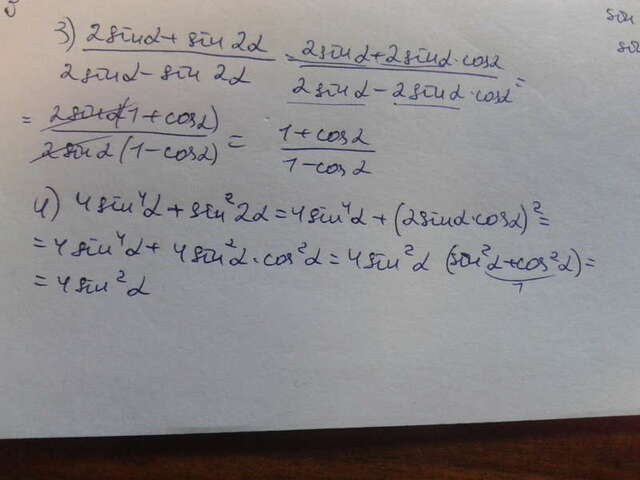 sin
3) (2sinα + sin 2α)/(2sinα - sin 2α) = (2sinα + 2sinα·cosα)/(2sinα - 2sinα·cosα) =
= (2sinα(1+cosα))/(2sinα(1-cosα)) = (1+cosα)/(1-cosα)
4) 4sin⁴α + sin²2α = 4sin⁴α + (2sinα·cosα)² =
= 4sin⁴α + 4sin²α·cos²α = 4sin²α (sin²α+cos²α) =
1
= 4sin²α